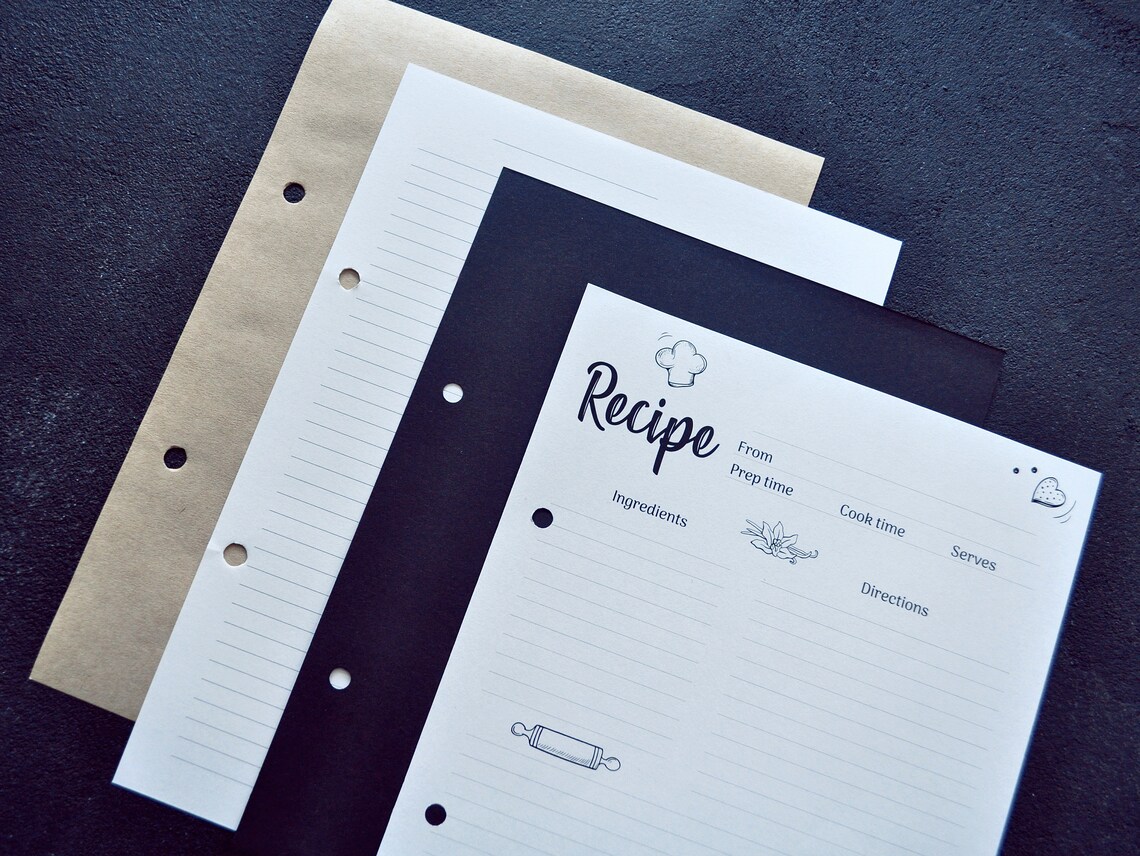 Recipe
From
Prep time
Cook time
Serves
Ingredients
Directions